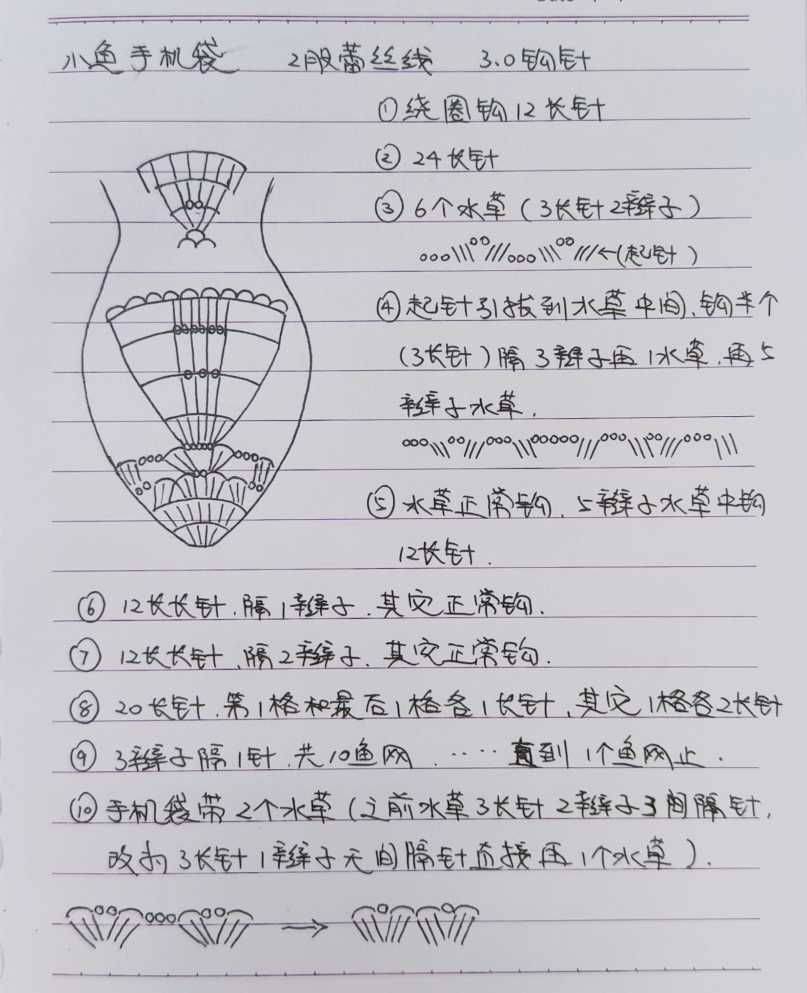 小鱼手机袋 2股蕾丝线 3.0钩针
①绕圈钩12长针
②24长针
③6个水草(3长针2辫子)
←(起针)
④起针引拔到水草中间,钩半个
(3长针)隔3辫子再1水草,再5
辫子水草.
⑤水草正常钩,5辫子水草中钩
12长针.
⑥12长长针,隔1辫子,其它正常钩.
⑦12长长针,隔2辫子,其它正常钩.
⑧20长针,第1格和最后1格各1长针,其它1格各2长针
⑨3辫子隔1针,共10鱼网.……直到1个鱼网止.
⑩手机袋带2个水草(之前水草3长针2辫子3间隔针,
改为3长针1辫子无间隔针直接再1个水草).